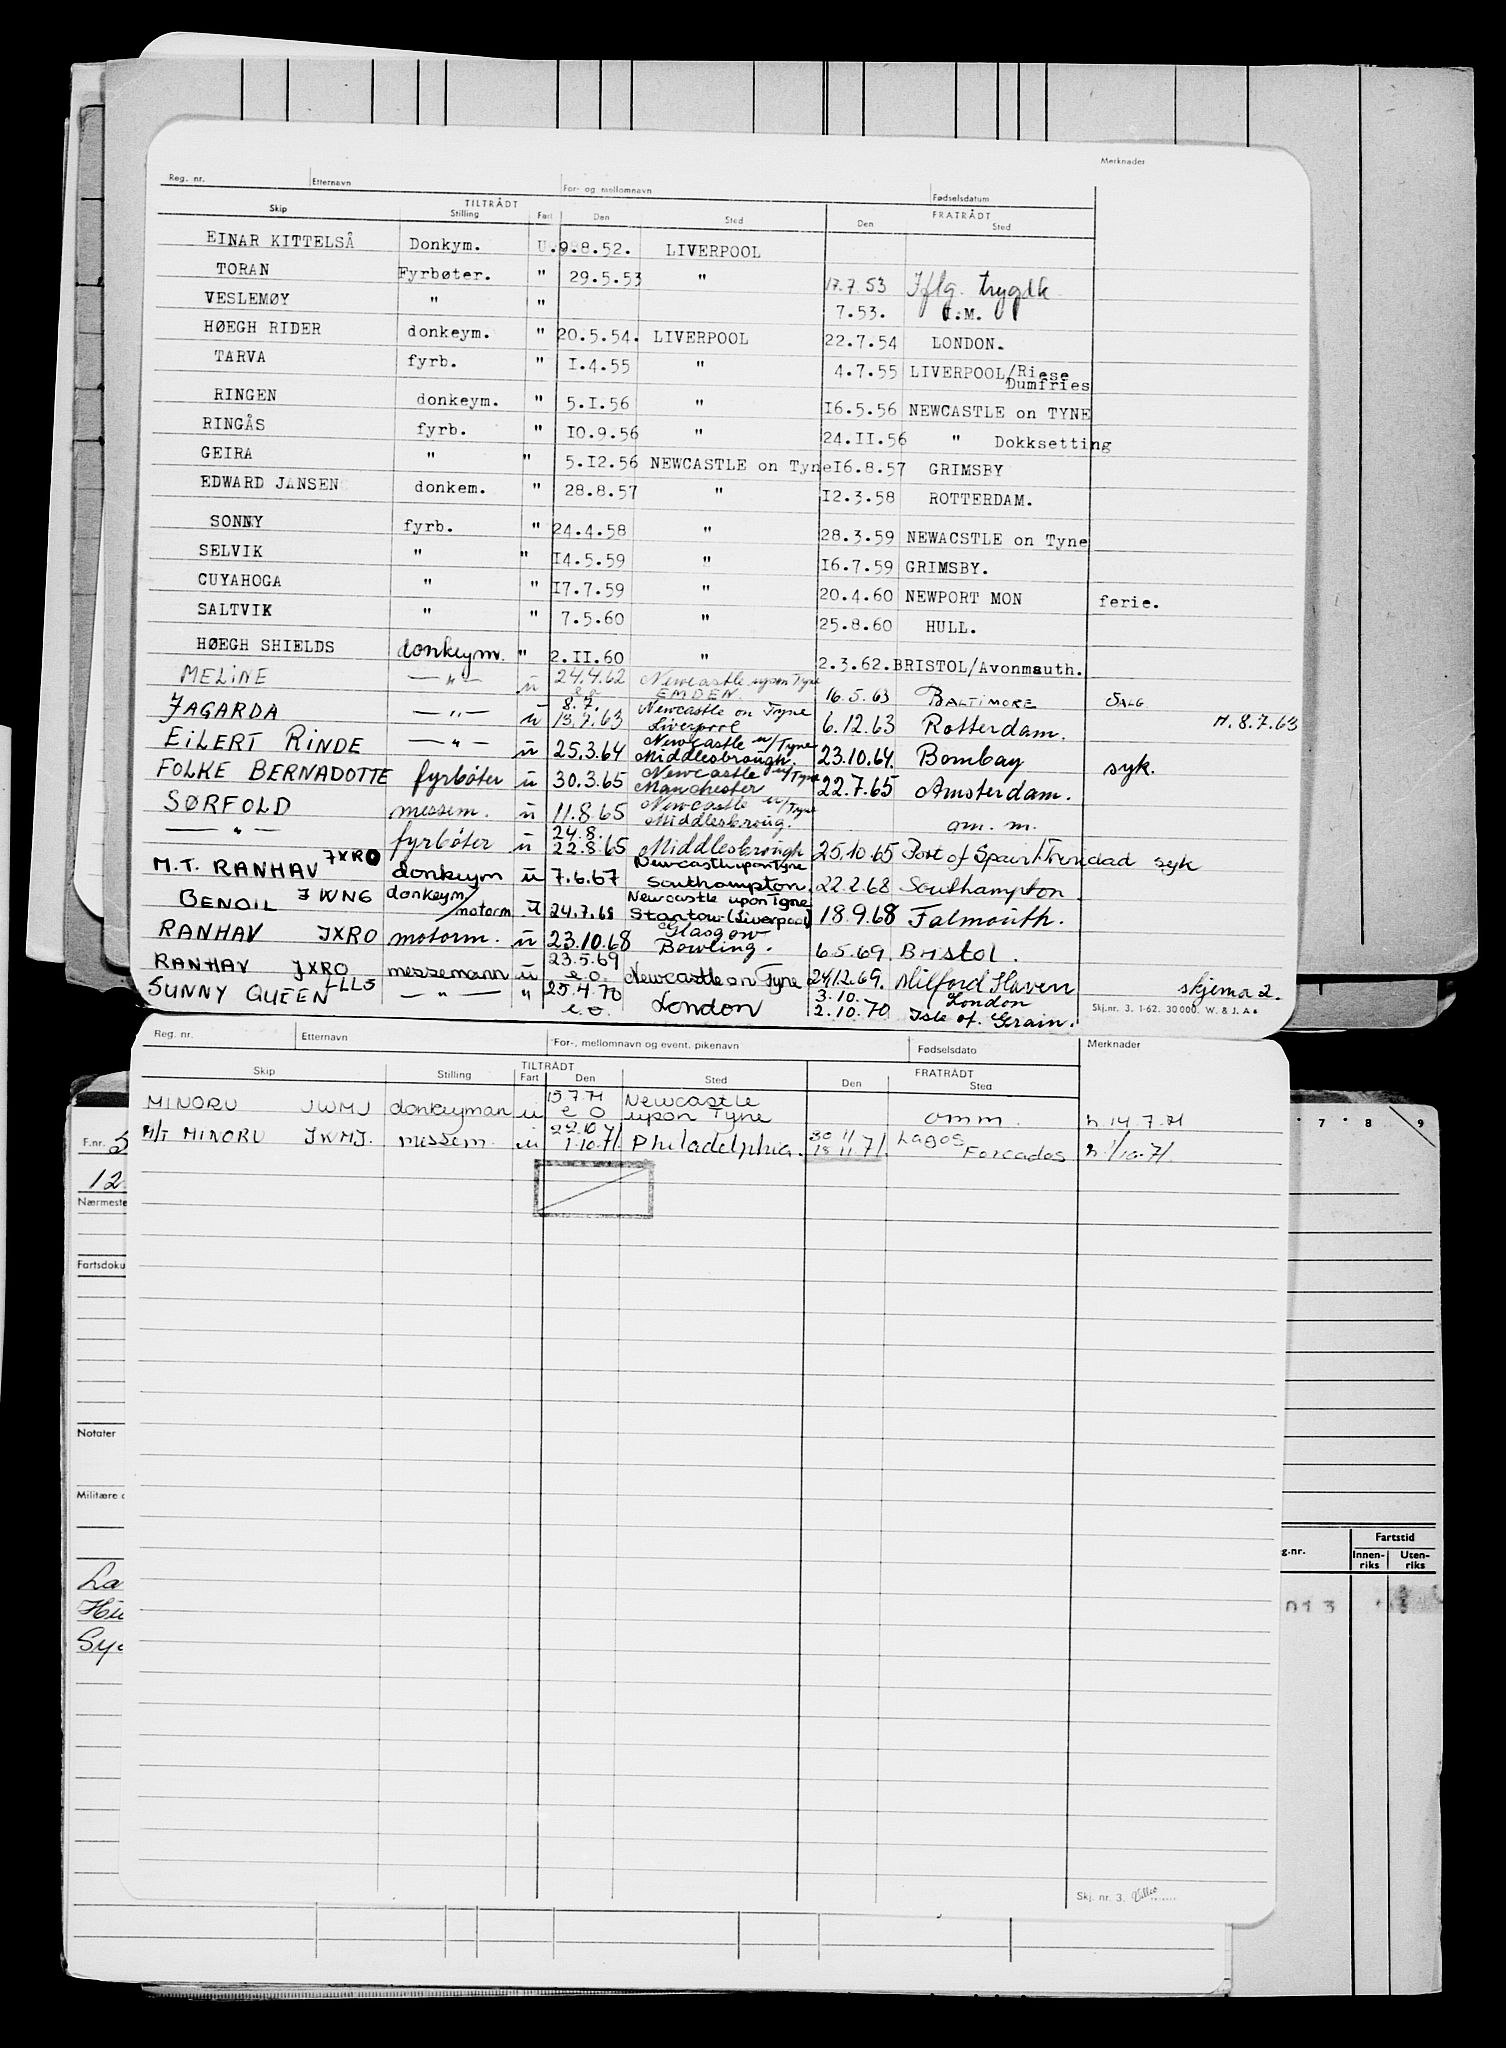 Merknader
Reg. nr. Etternavn For- og mellomnavn Fødselsdatum
TILTRÅDT FRATRÅDT
Skip Stilling Fart Den Sted Den Sted
EINAR KITTELSÅ Donkym. U. 9.8.52. LIVERPOOL
TORAN Fyrbøter. " 29.5.53 " 17.7.53 Iflg. trygdk
VESLEMØY " " 7.53. O.M.
HØEGH RIDER donkeym. " 20.5.54. LIVERPOOL 22.7.54 LONDON.
TARVA fyrb. " I.4.55 " 4.7.55 LIVERPOOL/Riese
Dumfries
RINGEN donkeym. " 5.I.56 " I6.5.56 NEWCASTLE on TYNE
RINGÅS fyrb. " I0.9.56 " 24.II.56 " Dokksetting
GEIRA " " 5.I2.56 NEWCASTLE on Tyne I6.8.57 GRIMSBY
EDWARD JANSEN donkem. " 28.8.57 " I2.3.58 ROTTERDAM.
SONNY fyrb. " 24.4.58 " 28.3.59 NEWACSTLE on Tyne
SELVIK " " I4.5.59 " I6.7.59 GRIMSBY.
CUYAHOGA " " I7.7.59 " 20.4.60 NEWPORT MON ferie.
SALTVIK " " 7.5.60 " 25.8.60 HULL.
HØEGH SHIELDS donkeym. " 2.II.60 " 2.3.62. BRISTOL/Avonmauth.
MELINE — " — u 24.4.62 Newcastle upon Tyne 16.5.63 BALTIMORE SALG
e.o. EMDEN.
JAGARDA — " — u 8.7. Newcastle on Tyne 6.12.63 Rotterdam. M. 8.7.63
13.7.63 Liverpool
EILERT RINDE — " — u 25.3.64 Newcastle u/Tyne 23.10.64. Bombay syk.
Middlesbrough.
FOLKE BERNADOTTE fyrbøter u 30.3.65 Newcastle u/Tyne 22.7.65 Amsterdam.
Manchester
SØRFOLD messem. u 11.8.65 Newcastle u/Tyne om. m.
Middlesbroug.
— " — fyrbøter u 24.8. Middlesbrough 25.10.65 Port of Spain/Trindad syk
22.8.65
M.T. RANHAV JXRO donkeym u 7.6.67 Newcastle upon Tyne 22.2.68 Southampton.
Southampton.
BENOIL JWNG donkeym/ motorm u 24.7.68 Newcastle upon Tyne 18.9.68 Falmouth.
Stantow (Liverpool)
RANHAV JXRO motorm. u 23.10.68 Glasgow 6.5.69. Bristol.
Bowling.
RANHAV JXRO messemann u 23.5.69 e.o. Newcastle on Tyne 24.12.69. Milford Haven
SUNNY QUEEN LLLS — " — " 25.4.70 e.o. London 3.10. London skjema 2.
2.10.70 Isle of Grain.
Skj.nr. 3. 1-62. 30000. W. & J. A s
Reg. nr. Etternavn For-, mellomnavn og event. pikenavn Fødselsdato Merknader
TILTRÅDT FRATRÅDT
Skip Stilling Fart Den Sted Den Sted
MINORU JWMJ donkeyman u 15.7.71 e o Newcastle upon Tyne omm. h. 14.7.71
M/T MINORU JWMJ. messem. u 22.10 Philadelphia. 30 11 Lagos h 1/10.71.
1.10.71. 18 11 71. Forcados
F.nr. 5
12
Nærmeste
Fartsdoku
Notater
Militære o
La
Sy
7 8 9
g.nr. Fartstid
Innen-riks Uten-riks
013
Skj. nr. 3.